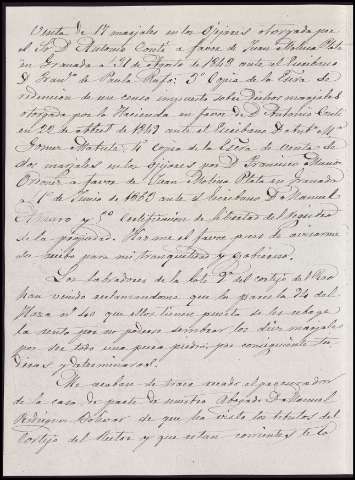 Venta de 17 marjales en los Ogijares otorgada por
el Sr. Dn. Antonio Conti a favor de Juan Molina Plata
en Granada a 31 de Agosto de 1849 ante el Escribano
D. Franco. de Paula Rufo: 3º Copia de la Escra. de
redencion de un censo impuesto sobre dichos marjales
otorgada por la Hacienda en favor de D. Antonio Conti
en 22 de Abril de 1849 ante el Escribano D.
Gomez Matute: 4º copia de la Escra. de Venta de
dos marjales en los Ogijares por D. Francisco
a favor de Juan Molina Plata en Granada
a 1º de Junio de 1852 ante el Escribano Dn. Manuel
y 5º Certificacion de libertad del
de la propiedad. Hagame el favor pues de avisarme
su recibo para mi tranquilidad y gobierno.
Los labradores de la suerte 2ª del cortijo del
han venido reclamandome que la parcela 24 del
Haza nº que ellos tienen puesta se les rebaje
la renta por no poderse sembrar los diez marjales
por ser todo una pura piedra, por consiguiente su
Divas y determinaras.
Me acaban de traer recado el procurador
de la casa de parte de nuestro Abogado Dn. Manuel
Rodriguez Bolivar de que ha visto los titulos del
Cortijo del Rector y que estan corrientes te lo